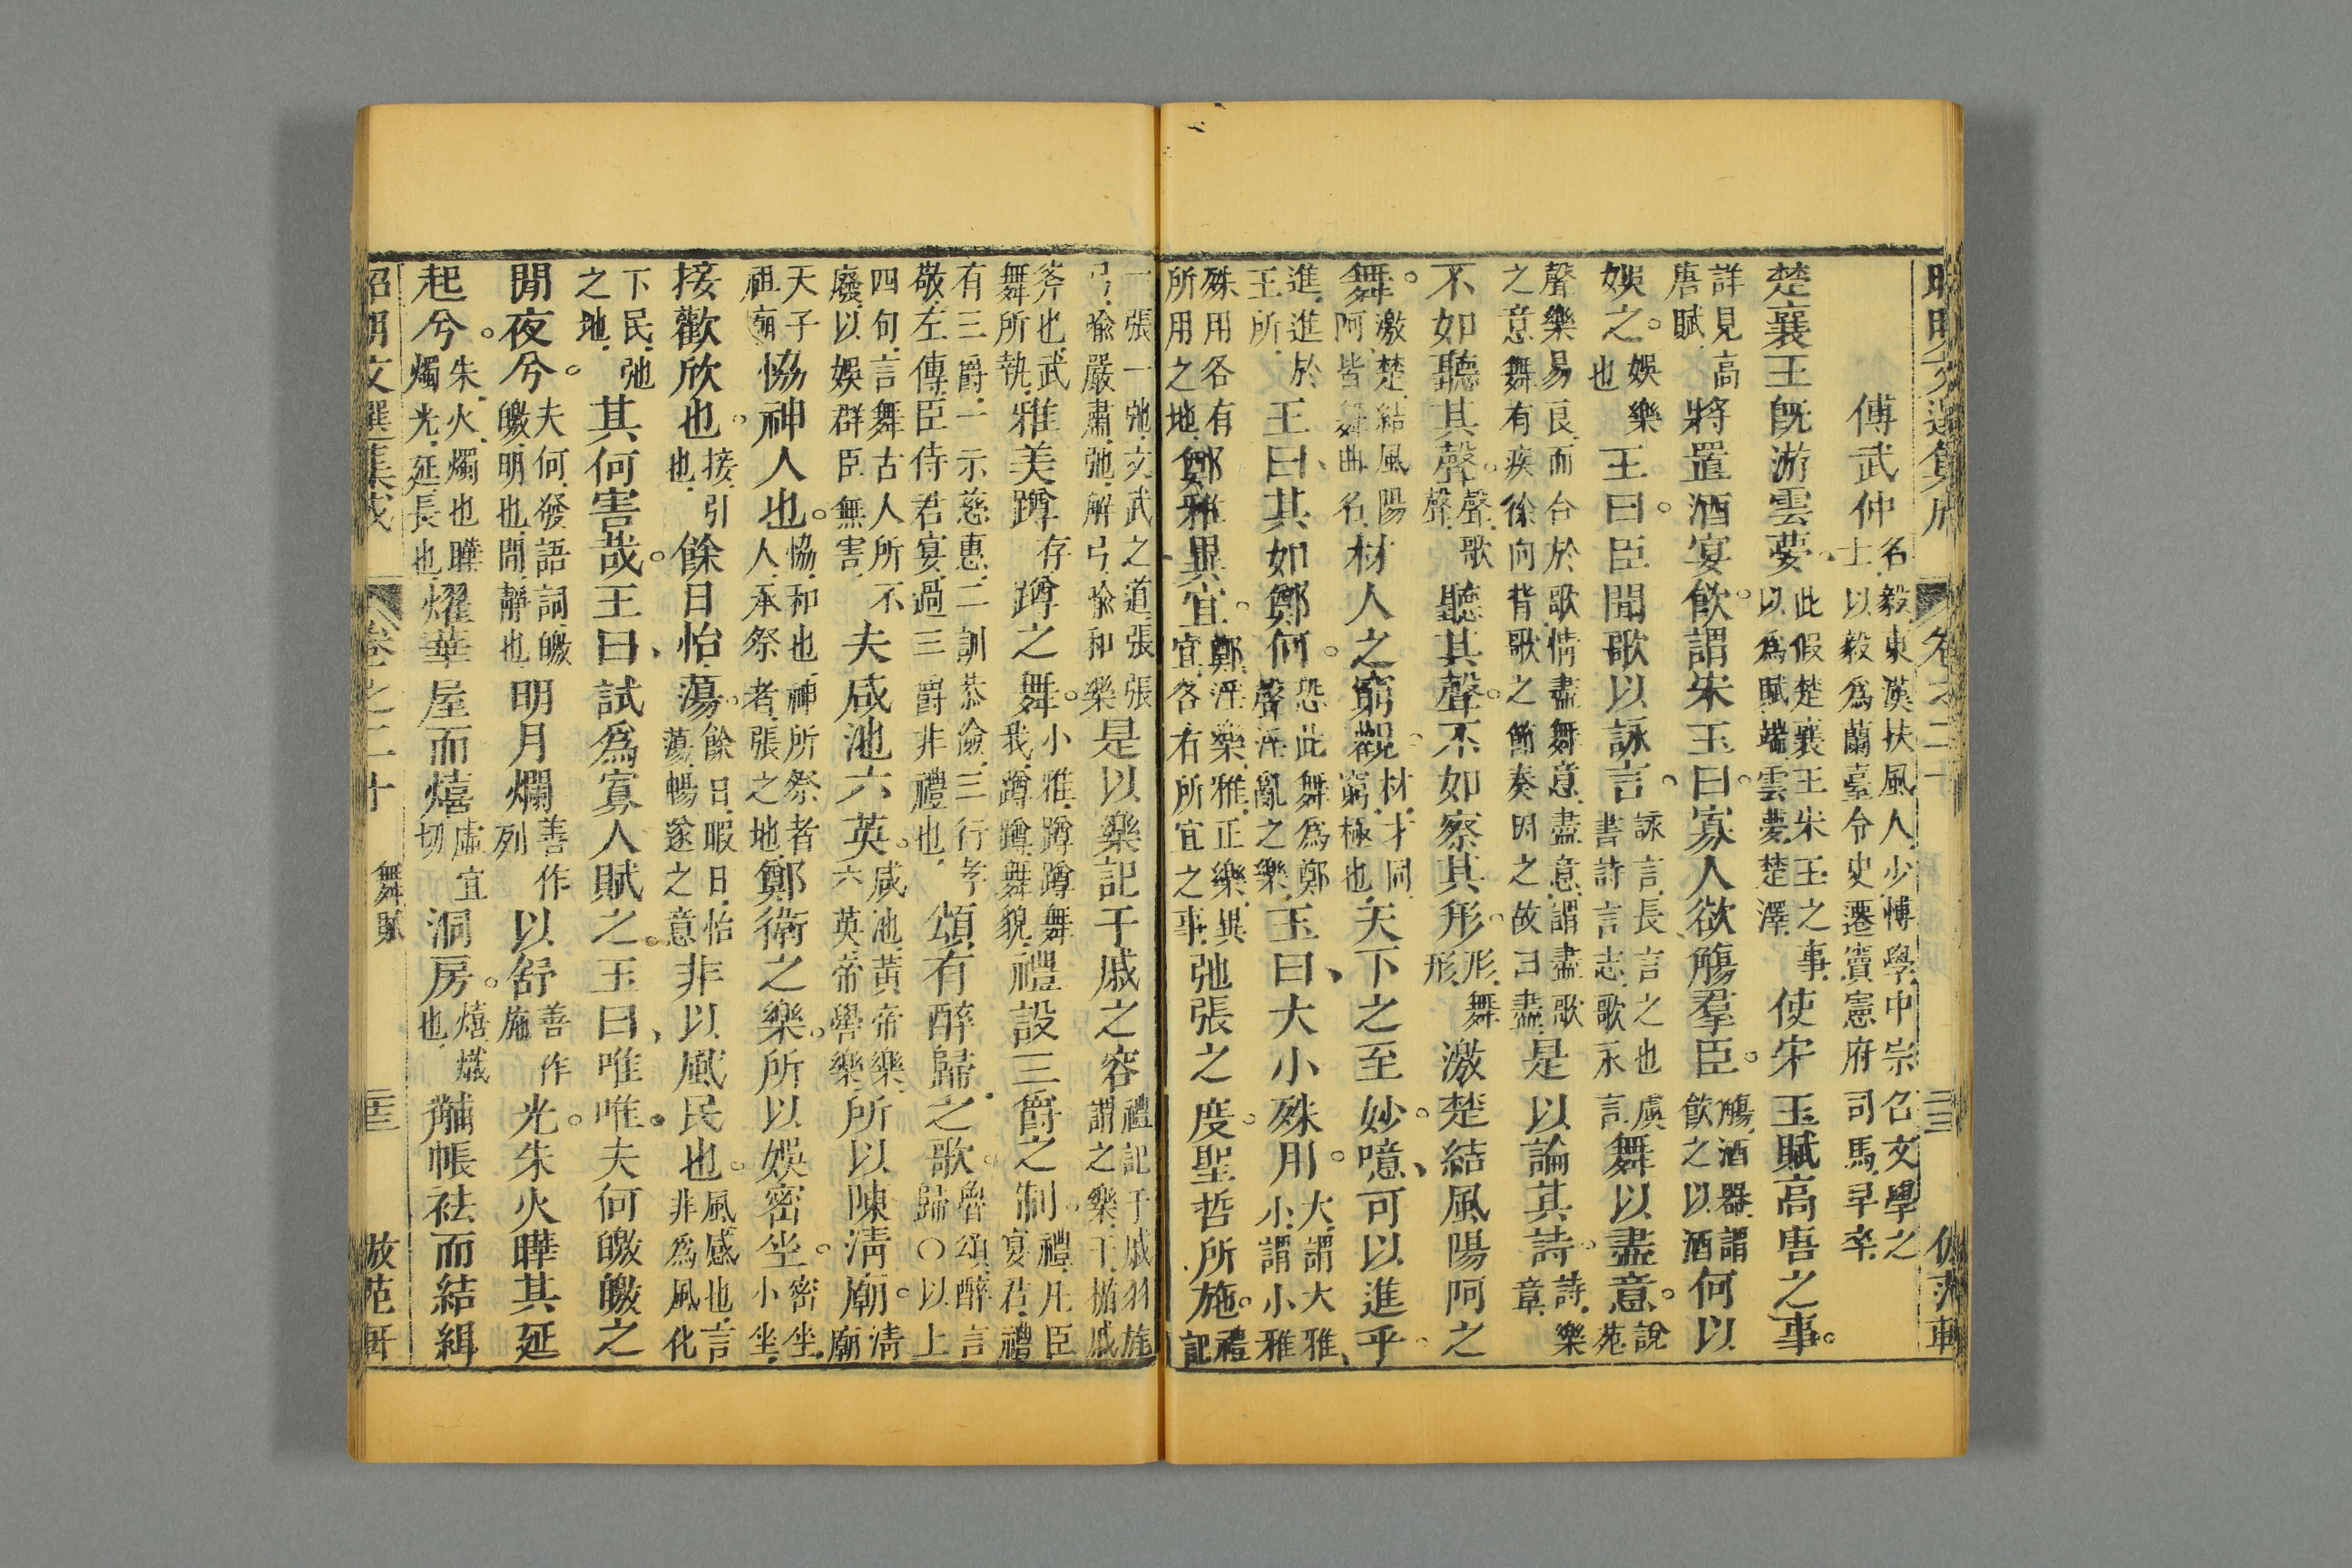 昭明文選集成 卷之二十
傅武仲名毅東漢扶風人少博學中宗召文學之士以毅爲蘭臺令史遷竇憲府司馬早卒
楚襄王旣游雲夢此假楚襄王朱玉之事以爲賦端雲夢楚澤使宋玉賦高唐之事
詳見高唐賦將置酒宴飲謂宋玉曰寡人欲觴羣臣觴酒器謂飲之以酒何以
娛之娛樂也王曰臣聞歌以詠言詠言長言之也虞書詩言志歌永言舞以盡意說苑
聲樂易良而合於歌情盡舞意盡意謂盡歌之意舞有疾徐向背歌之節奏明之故曰盡是以論其詩詩樂章
不如聽其聲聲歌聲聽其聲不如察其形形舞形激楚結風陽阿之
舞激楚結風陽阿皆舞曲名材人之窮觀材才同窮極也天下之至妙噫可以進乎
進進於王所王曰其如鄭何恐此舞爲鄭聲淫亂之樂玉曰大小殊用大謂大雅小謂小雅
殊用各有所用之地鄭雅異宜鄭淫樂雅正樂異宜各有所宜之事弛張之度聖哲所施禮記
一張一弛文武之道張張弓喻嚴肅弛解弓喻和樂是以樂記干戚之容禮記干戚羽旄謂之樂干楯戚
斧也武舞所執雅美蹲存蹲之舞小雅蹲蹲舞我蹲蹲舞貌禮設三爵之制禮凡臣宴君禮
有三爵一示慈惠二訓恭儉三行孝敬左傳臣侍君宴過三爵非禮也頌有醉歸之歌魯頌醉言歸〇以上
四句言舞古人所不廢以娛群臣無害夫咸池六英咸池黃帝樂六英帝嚳樂所以陳清廟清廟
天子祖廟恊神人也恊和也神所祭者人承祭者張之地鄭衛之樂所以娛密坐密坐小坐
接歡欣也接引也餘日怡蕩餘日暇日怡蕩暢遂之意非以風民也風感也言非爲風化
下民弛之地其何害哉王曰試爲寡人賦之玉曰唯唯夫何皦皦之
閒夜兮夫何發語詞皦皦明也閒靜也明月爛善作列以舒善作施光朱火曄其延
起兮朱火燭也曄燭光延長也燿華屋而熺虛宜切洞房熺熾也黼帳祛而結緝
昭明文選集成 卷之二十 舞賦